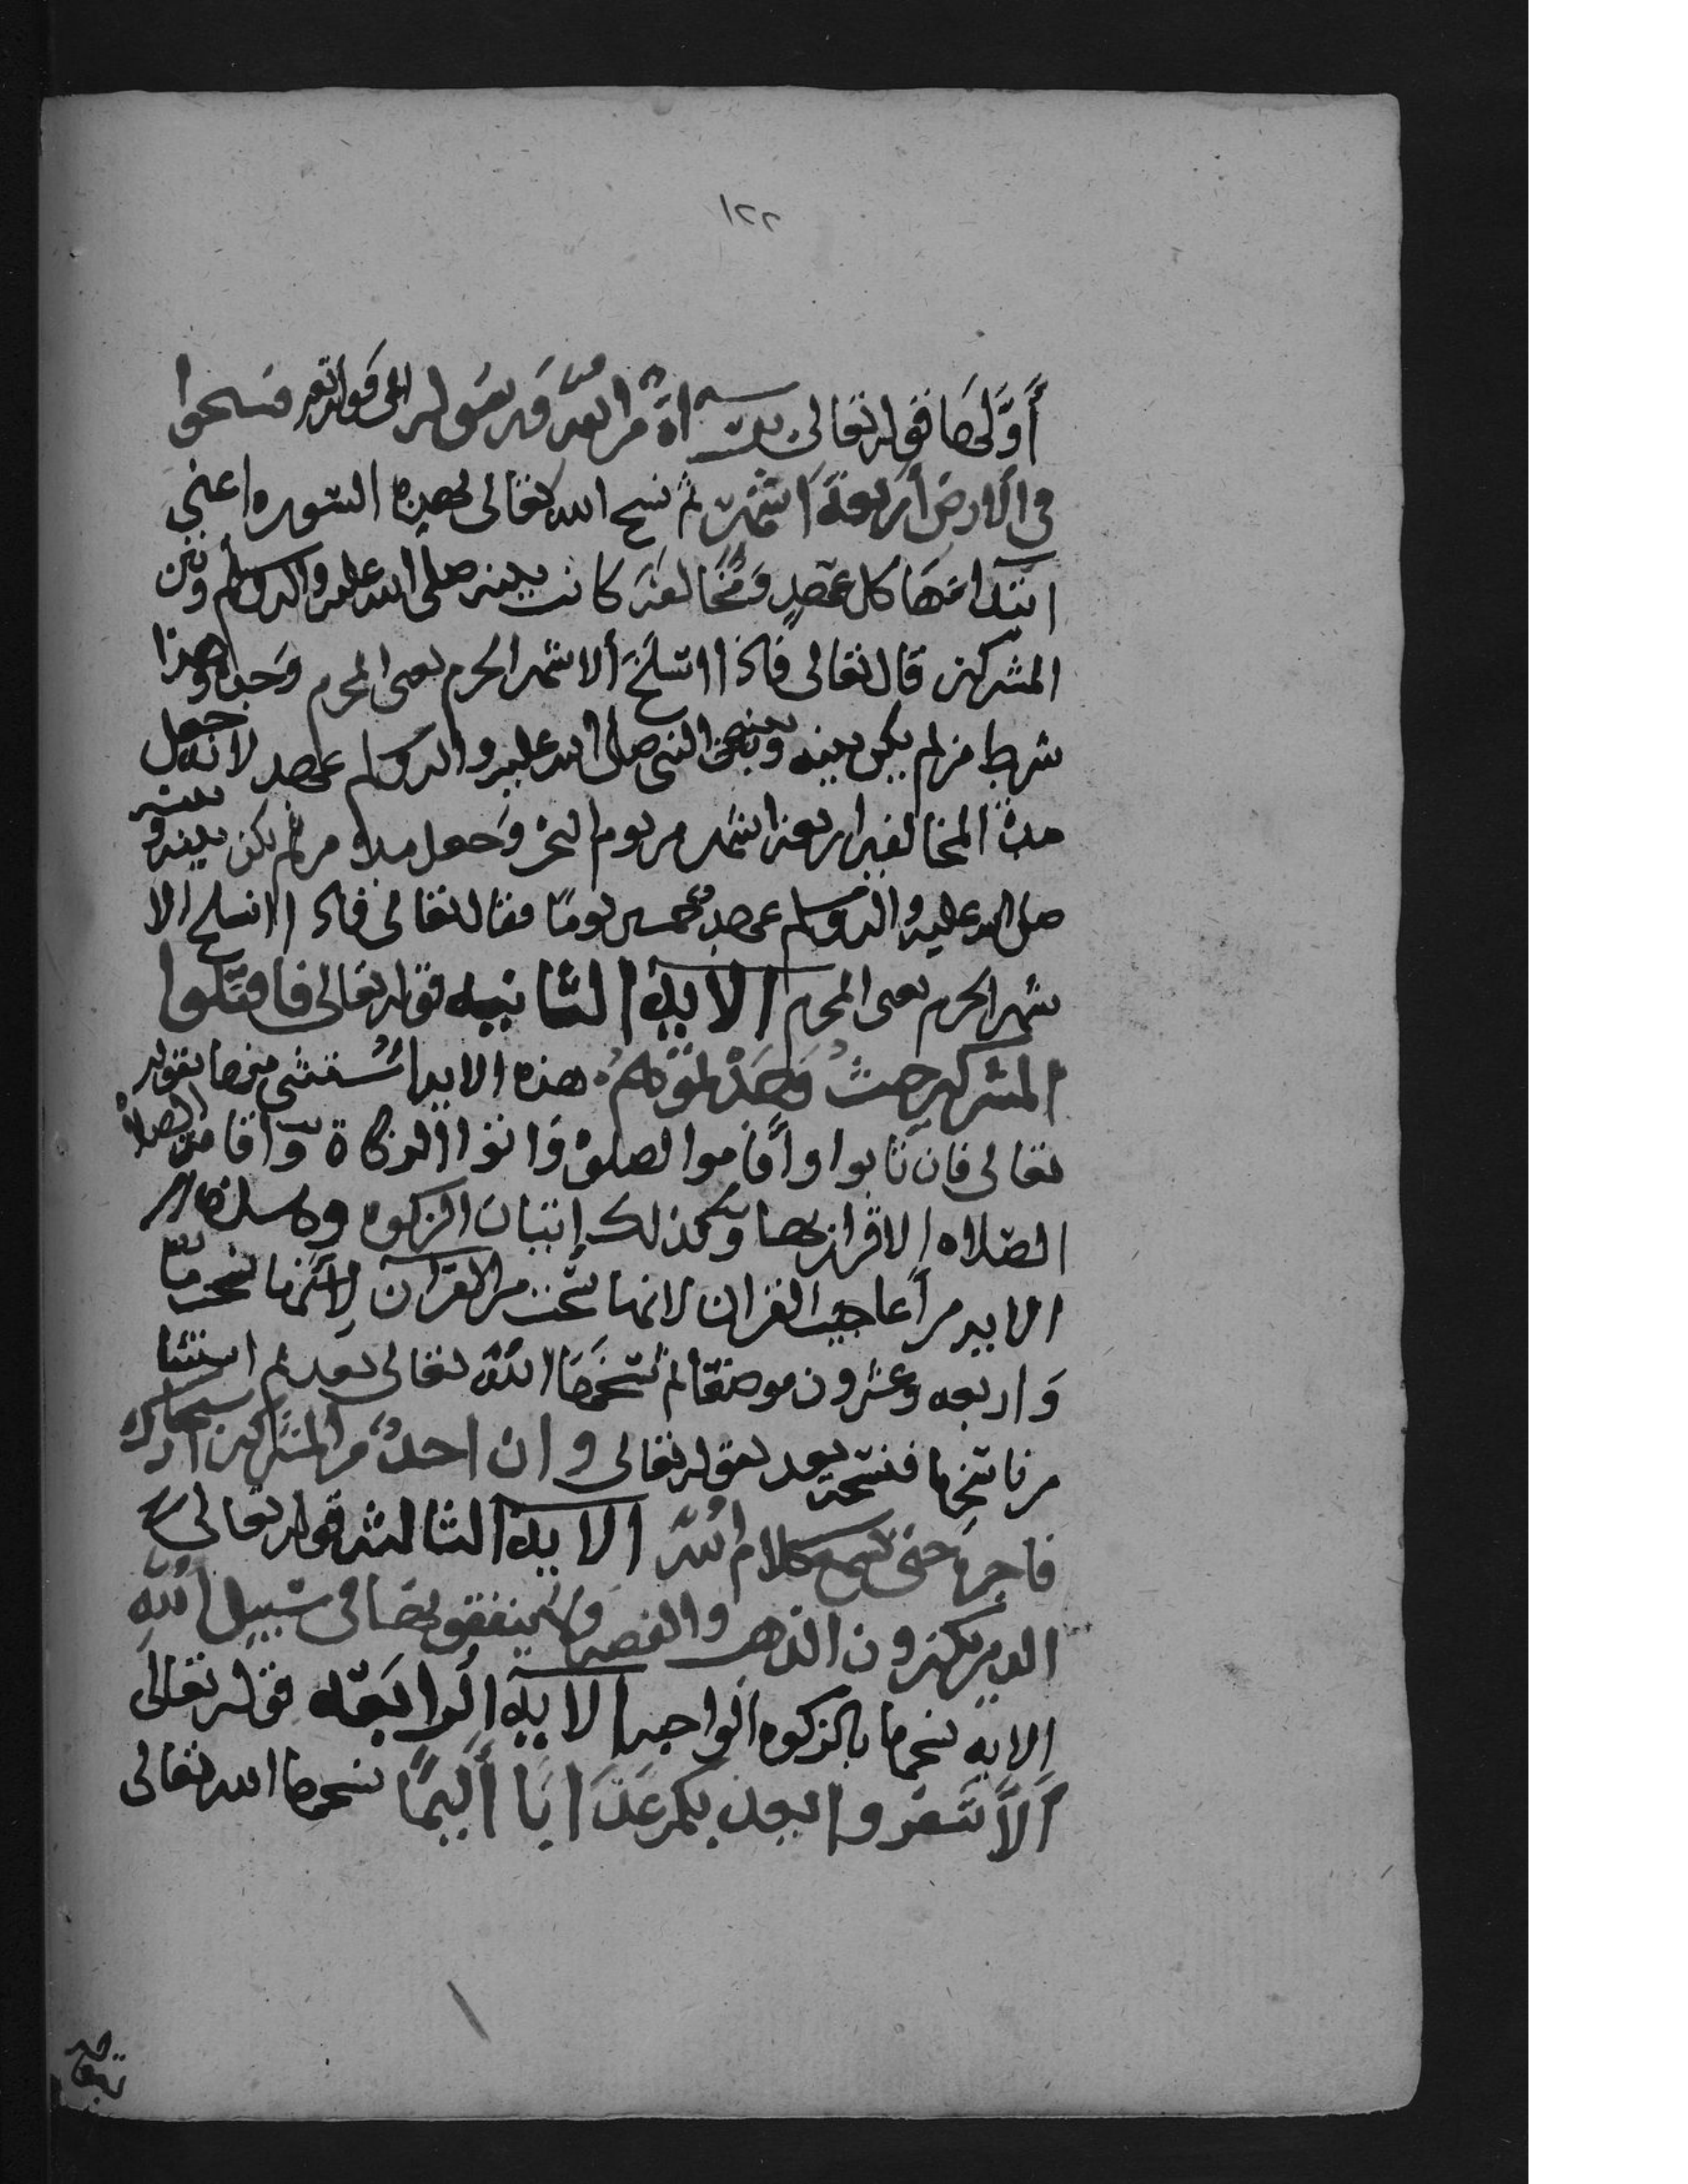 ١٢٢
أوَّلها قوله تعالى براءة من الله ورسوله إلى قوله تعالى فسيحوا
في الارض أربعة أشهر ثم نسخ الله تعالى بهذه السورة اعني
ابتداءها كل عهدٍ ومخالفة كانت بينه صلى الله عليه واله وسلم وبين
المشركين قال تعالى فاذا انسلخ ألاشهر الحرم يعني المحرم وحده وهذا
شرط من لم يكن بينه وبين النبي صلى الله عليه واله وسلم عهد لانه جعل
مدة المخالفين اربعة اشهر من يوم النحر وجعل مدة من لم يكن بينه وبينه
صلى الله عليه واله وسلم عهد خمسين يومًا فقال تعالى فاذا انسلخ الا
شهر الحرم يعني المحرم الآية الثانيه قوله تعالى فاقتلوا
المشركين حيث وجدتموهم هذه الايه استثنى منها بقوله
تعالى فان تابوا وأقاموا الصلوة واتوا الزكاة واقامة الصلاة
الصلاه الاقرار بها وكذلك إيتان الزكوه وهذه
الايه من أعاجيب القران لانها نسخت من القرآن لأنها نسخت مائة
وأربعه وعشرون موضعًا ثم نسخها الله تعالى بعد ثم استثنا
من ناسخها فنسخه بعد بقوله تعالى وان احدٌ من المشركين استجارك
فاجره حتى يسمع كلام الله الآية الثالثه قوله تعالى
الذين يكنزون الذهب والفضه ولا ينفقونها في سبيل الله
الايه نسخها بالزكوه الواجبه الآية الرابعه قوله تعالى
ألَّا تنفروا يعذبكم عذابًا أليمًا نسخها الله تعالى